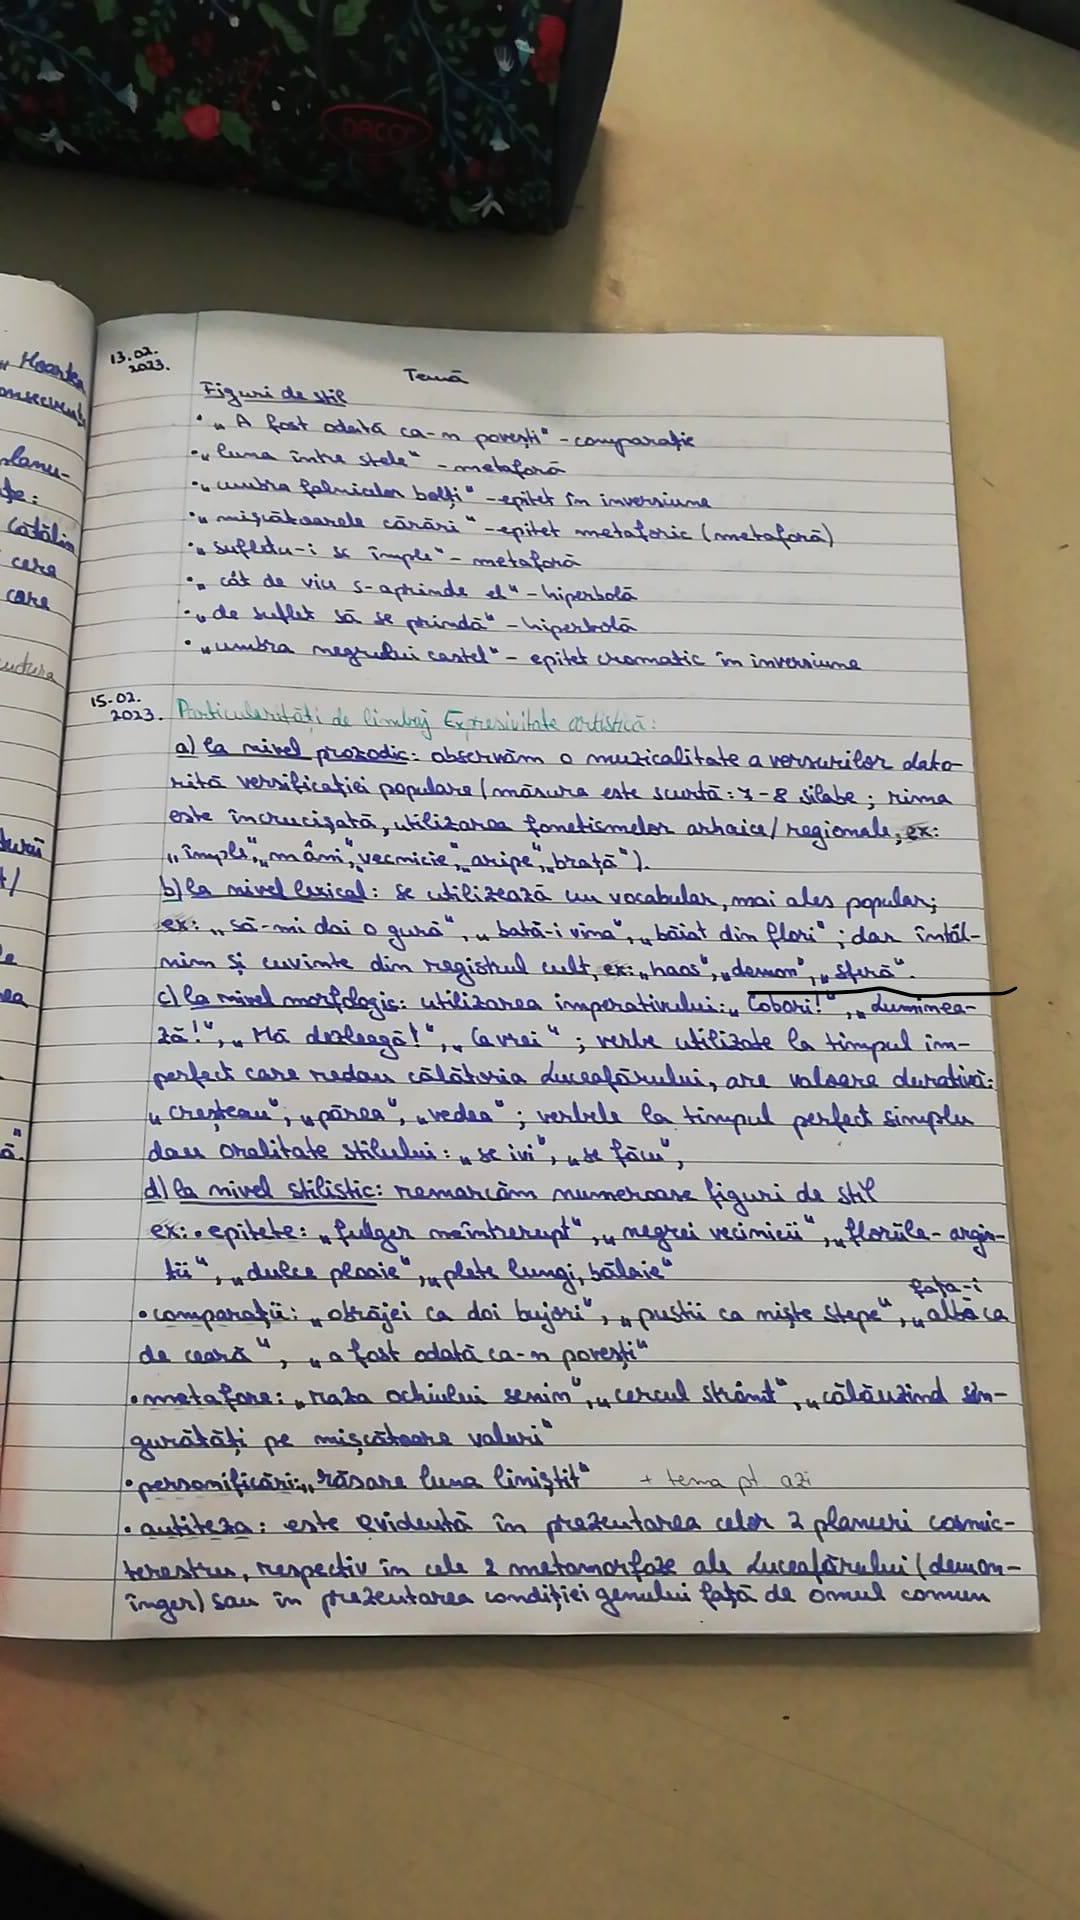 DACO
13.02.
2023.
Temă
Figuri de stil
• „A fost odată ca-n povești" - comparație
• „luna între stele" - metaforă
• „umbra falnicelor bolți" - epitet în inversiune
• „mișcătoarele cărări" - epitet metaforic (metaforă)
• „sufletu-i se împle" - metaforă
• „cât de viu s-aprinde el" - hiperbolă
• „de suflet să se prindă" - hiperbolă
• „umbra negrului castel" - epitet cromatic în inversiune
15.02.
2023.
Particularități de limbaj Expresivitate artistică:
a) la nivel prozodic: observăm o muzicalitate a versurilor dato-
rită versificației populare (măsura este scurtă: 7-8 silabe; rima
este încrucișată, utilizarea fonetismelor arhaice/regionale, ex:
„împle", „mâni", „vecinicie", „aripe", „brață").
b) la nivel lexical: se utilizează un vocabular, mai ales popular;
ex: „să-mi dai o gură", „bată-i vina", „băiat din flori"; dar întâl-
nim și cuvinte din registrul cult, ex: „haos", „demon", „sferă".
c) la nivel morfologic: utilizarea imperativului: „Cobori!", „Luminea-
ză!", „Mă dezleagă!", „Ce vrei"; verbe utilizate la timpul im-
perfect care redau călătoria Luceafărului, are valoare durativă:
„creșteau", „părea", „vedea"; verbele la timpul perfect simplu
dau oralitate stilului: „se ivi", „se făcu",
d) la nivel stilistic: remarcăm numeroase figuri de stil
ex: • epitete: „fulger neîntrerupt", „negrei vecinicii", „florile-argin-
tii", „dulce ploaie", „plete lungi, bălaie"
• comparații: „obrăjei ca doi bujori", „pustii ca niște stepe", „fața-i albă ca
de ceară", „a fost odată ca-n povești"
• metafore: „raza ochiului senin", „cercul strâmt", „călăuzind sin-
gurătăți pe mișcătoare valuri"
• personificări: „răsare luna liniștit" + tema pt. azi
• antiteza: este evidentă în prezentarea celor 2 planuri cosmic-
terestru, respectiv în cele 2 metamorfoze ale Luceafărului (demon-
înger) sau în prezentarea condiției geniului față de omul comun